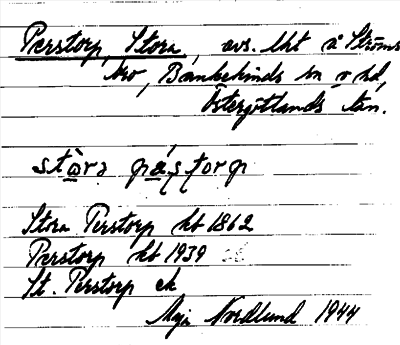 Perstorp, Stora, avs. lht å Ströms
bro, Bankekinds sn o hd,
Östergötlands län.
stɷ̀ra pásţorp
Stora Perstorp kb 1862
Perstorp kb 1939
St. Perstorp ek
Maja Nordlund 1944